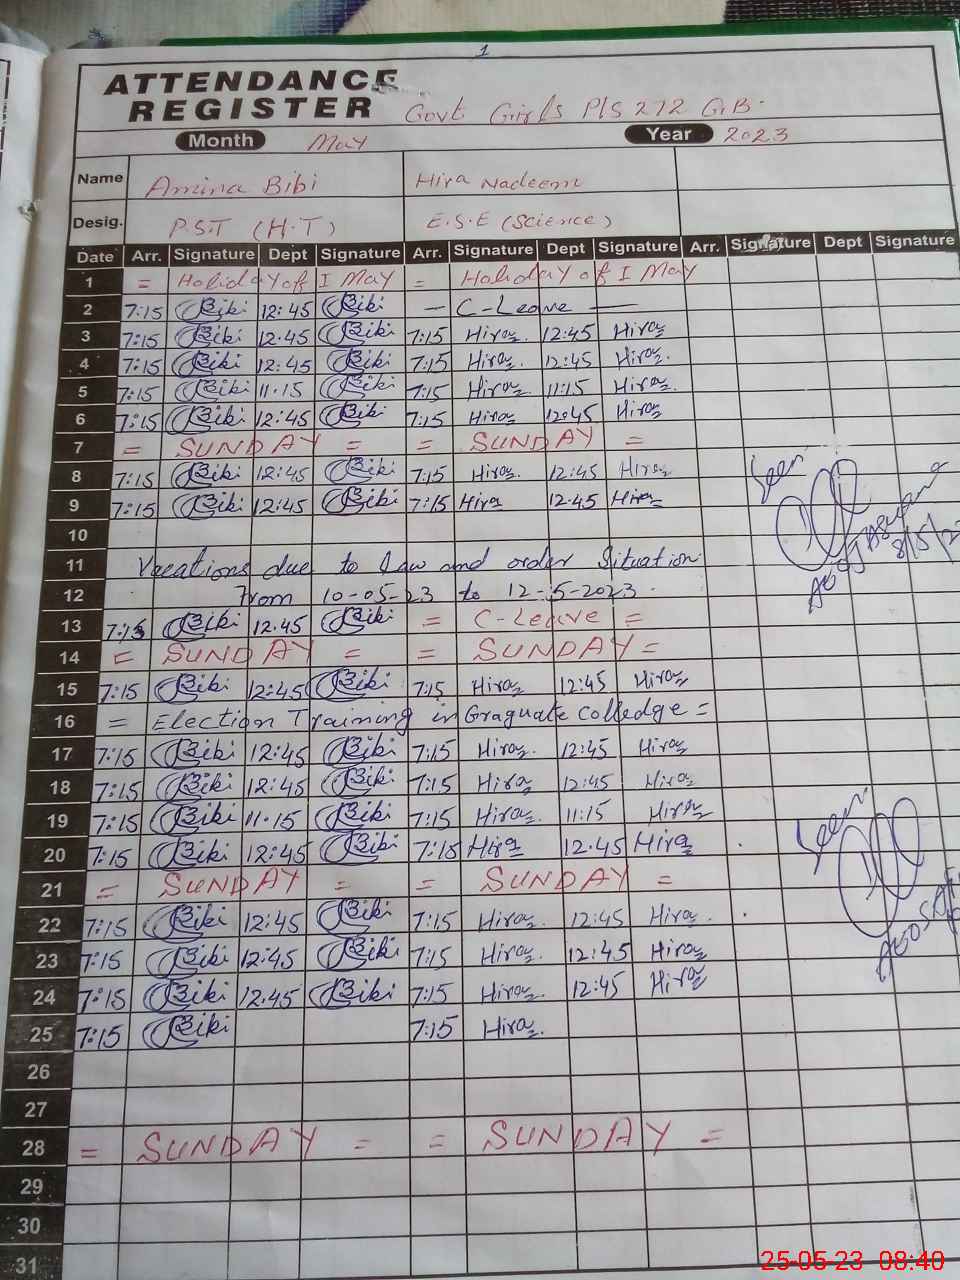 1
ATTENDANCE
REGISTER Govt Girls P/S 272 G.B.
Month May Year 2023
Name Amina Bibi Hira Nadeem
Desig. P.S.T (H.T) E.S.E (Science)
Date Arr. Signature Dept Signature Arr. Signature Dept Signature Arr. Signature Dept Signature
1 = Holiday off I May = Holiday of I May
2 7:15 Bibi 12:45 Bibi — C-Leave —
3 7:15 Bibi 12.45 Bibi 7:15 Hira 12:45 Hira
4 7:15 Bibi 12:45 Bibi 7:15 Hira 12:45 Hira
5 7:15 Bibi 11.15 Bibi 7:15 Hira 11:15 Hira
6 7:15 Bibi 12.45 Bibi 7:15 Hira 12:45 Hira
7 = SUNDAY = = SUNDAY =
8 7:15 Bibi 12:45 Bibi 7:15 Hira 12:45 Hira
9 7:15 Bibi 12:45 Bibi 7:15 Hira 12.45 Hira
10
11 Vacations due to Law and order Situation
12 From 10-05-23 to 12-5-2023.
13 7:15 Bibi 12.45 Bibi = C-Leave =
14 = SUNDAY = = SUNDAY =
15 7:15 Bibi 12:45 Bibi 7:15 Hira 12:45 Hira
16 = Election Training in Graguate Colledge =
17 7:15 Bibi 12:45 Bibi 7:15 Hira 12:45 Hira
18 7:15 Bibi 12:45 Bibi 7:15 Hira 12:45 Hira
19 7:15 Bibi 11.15 Bibi 7:15 Hira 11:15 Hira
20 7:15 Bibi 12:45 Bibi 7:15 Hira 12.45 Hira
21 = SUNDAY = = SUNDAY =
22 7:15 Bibi 12:45 Bibi 7:15 Hira 12:45 Hira
23 7:15 Bibi 12:45 Bibi 7:15 Hira 12:45 Hira
24 7:15 Bibi 12.45 Bibi 7:15 Hira 12:45 Hira
25 7:15 Bibi 7:15 Hira
26
27
28 = SUNDAY = = SUNDAY =
29
30
31
Seen
8/5/2
Seen
25-05-23 08:40